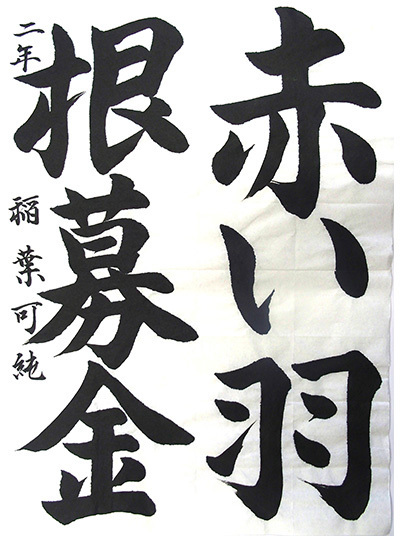 赤い羽
根募金
二年 稲葉可純